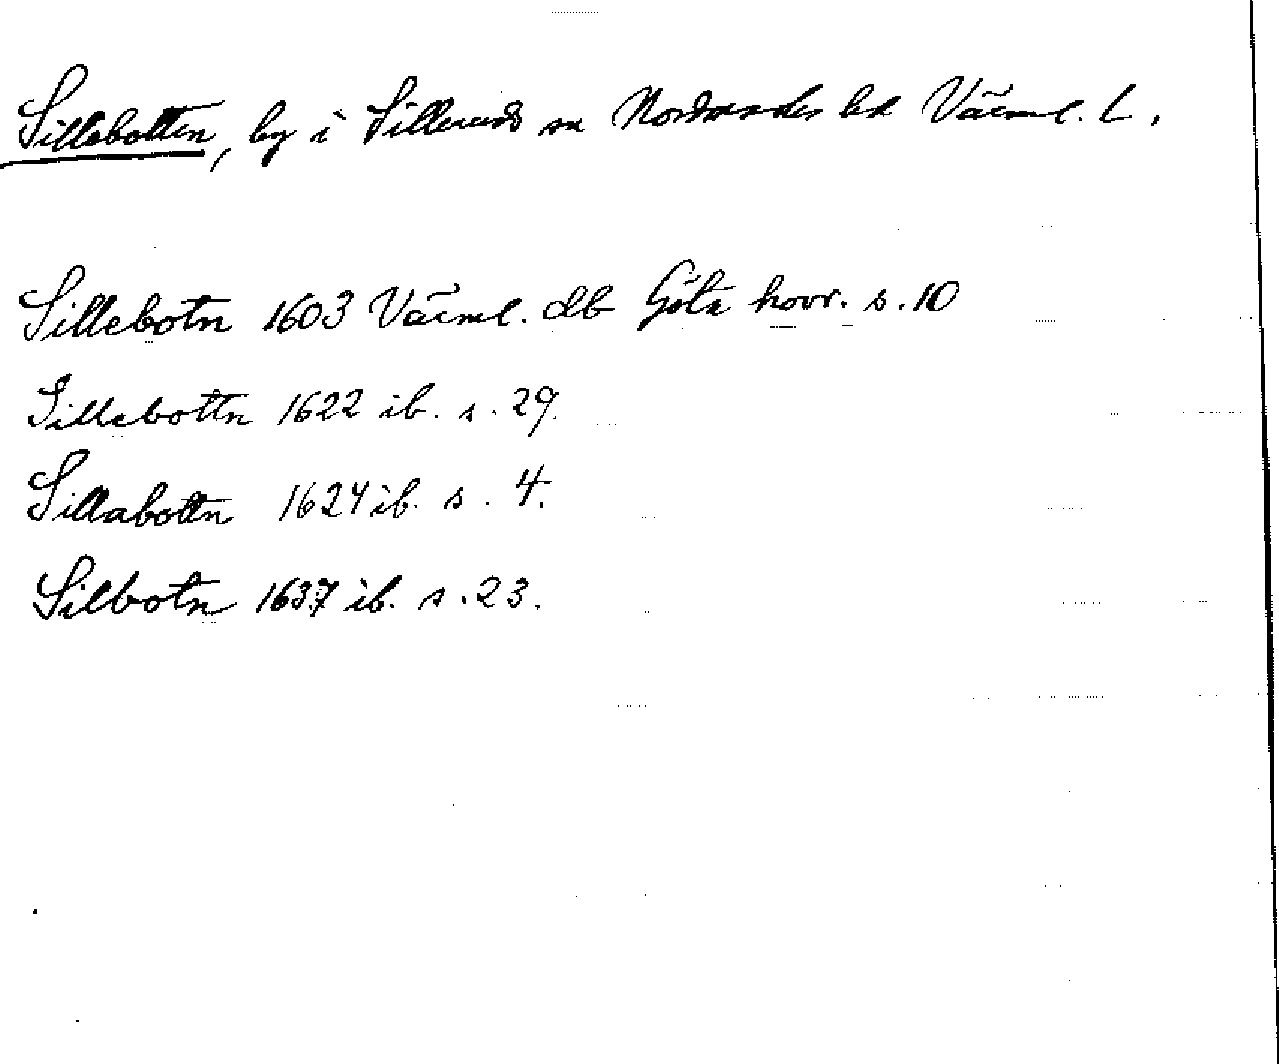 Sillebotten, by i Silleruds sn Nordmarks hd Värml. L.
Sillebotn 1603 Värml. db Göta hovr. s. 10
Sillebottn 1622 ib. s. 29.
Sillabottn 1624 ib. s. 4.
Silbotn 1637 ib. s. 23.